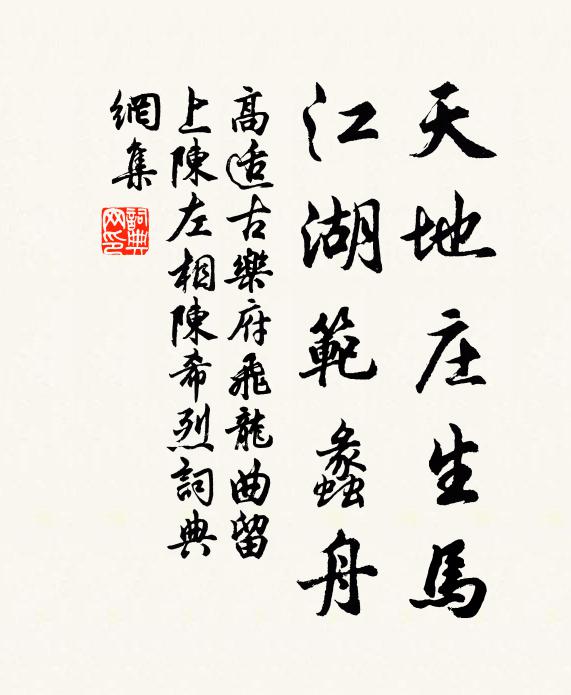 天地庄生馬
江湖範蠡舟
高适古樂府飛龍曲留
上陳左相陳希烈詞典
網集
詞典网印